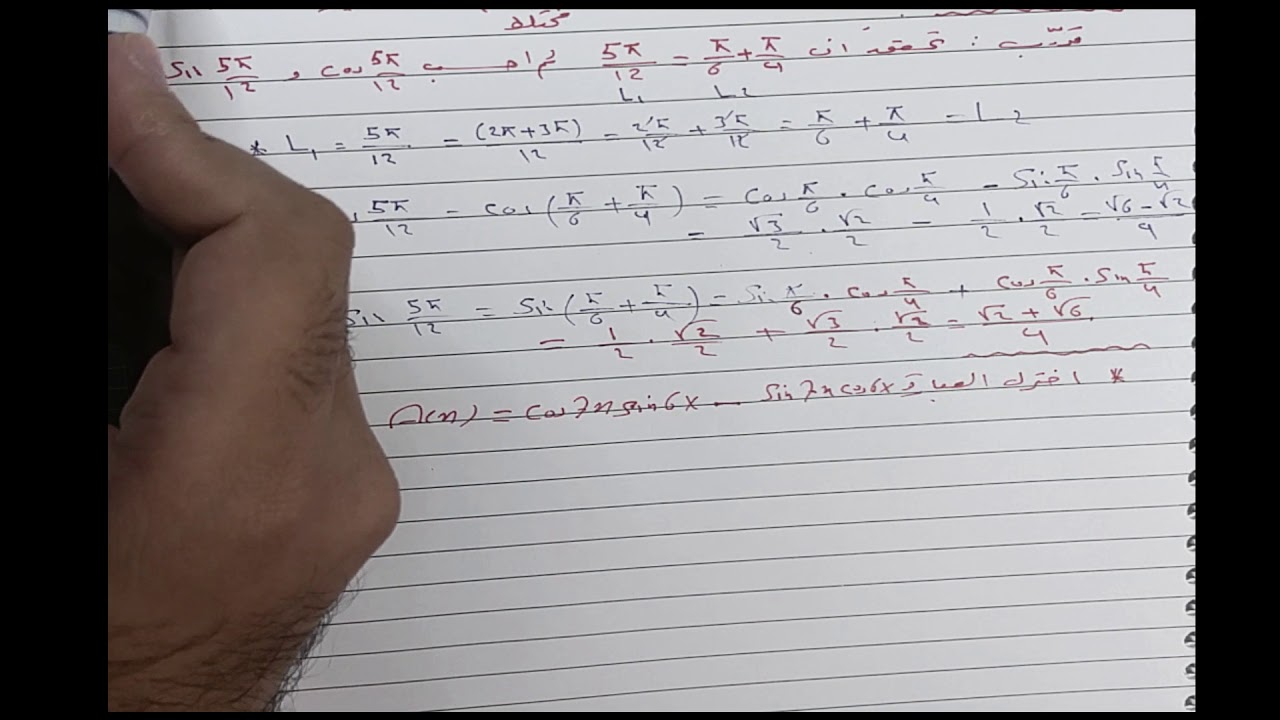 تدريب : تحقق أن 5π/12 = π/6 + π/4 ثم احسب cos 5π/12 و sin 5π/12
L₁ L₂
* L₁ = 5π/12 = (2π+3π)/12 = 2π/12 + 3π/12 = π/6 + π/4 = L₂
5π/12 = cos(π/6 + π/4) = cos π/6 . cos π/4 - sin π/6 . sin π/4
= √3/2 . √2/2 - 1/2 . √2/2 = (√6 - √2)/4
sin 5π/12 = sin(π/6 + π/4) = sin π/6 . cos π/4 + cos π/6 . sin π/4
= 1/2 . √2/2 + √3/2 . √2/2 = (√2 + √6)/4
* اختزل العبارة A(x) = cos7x sin6x - sin7x cos6x